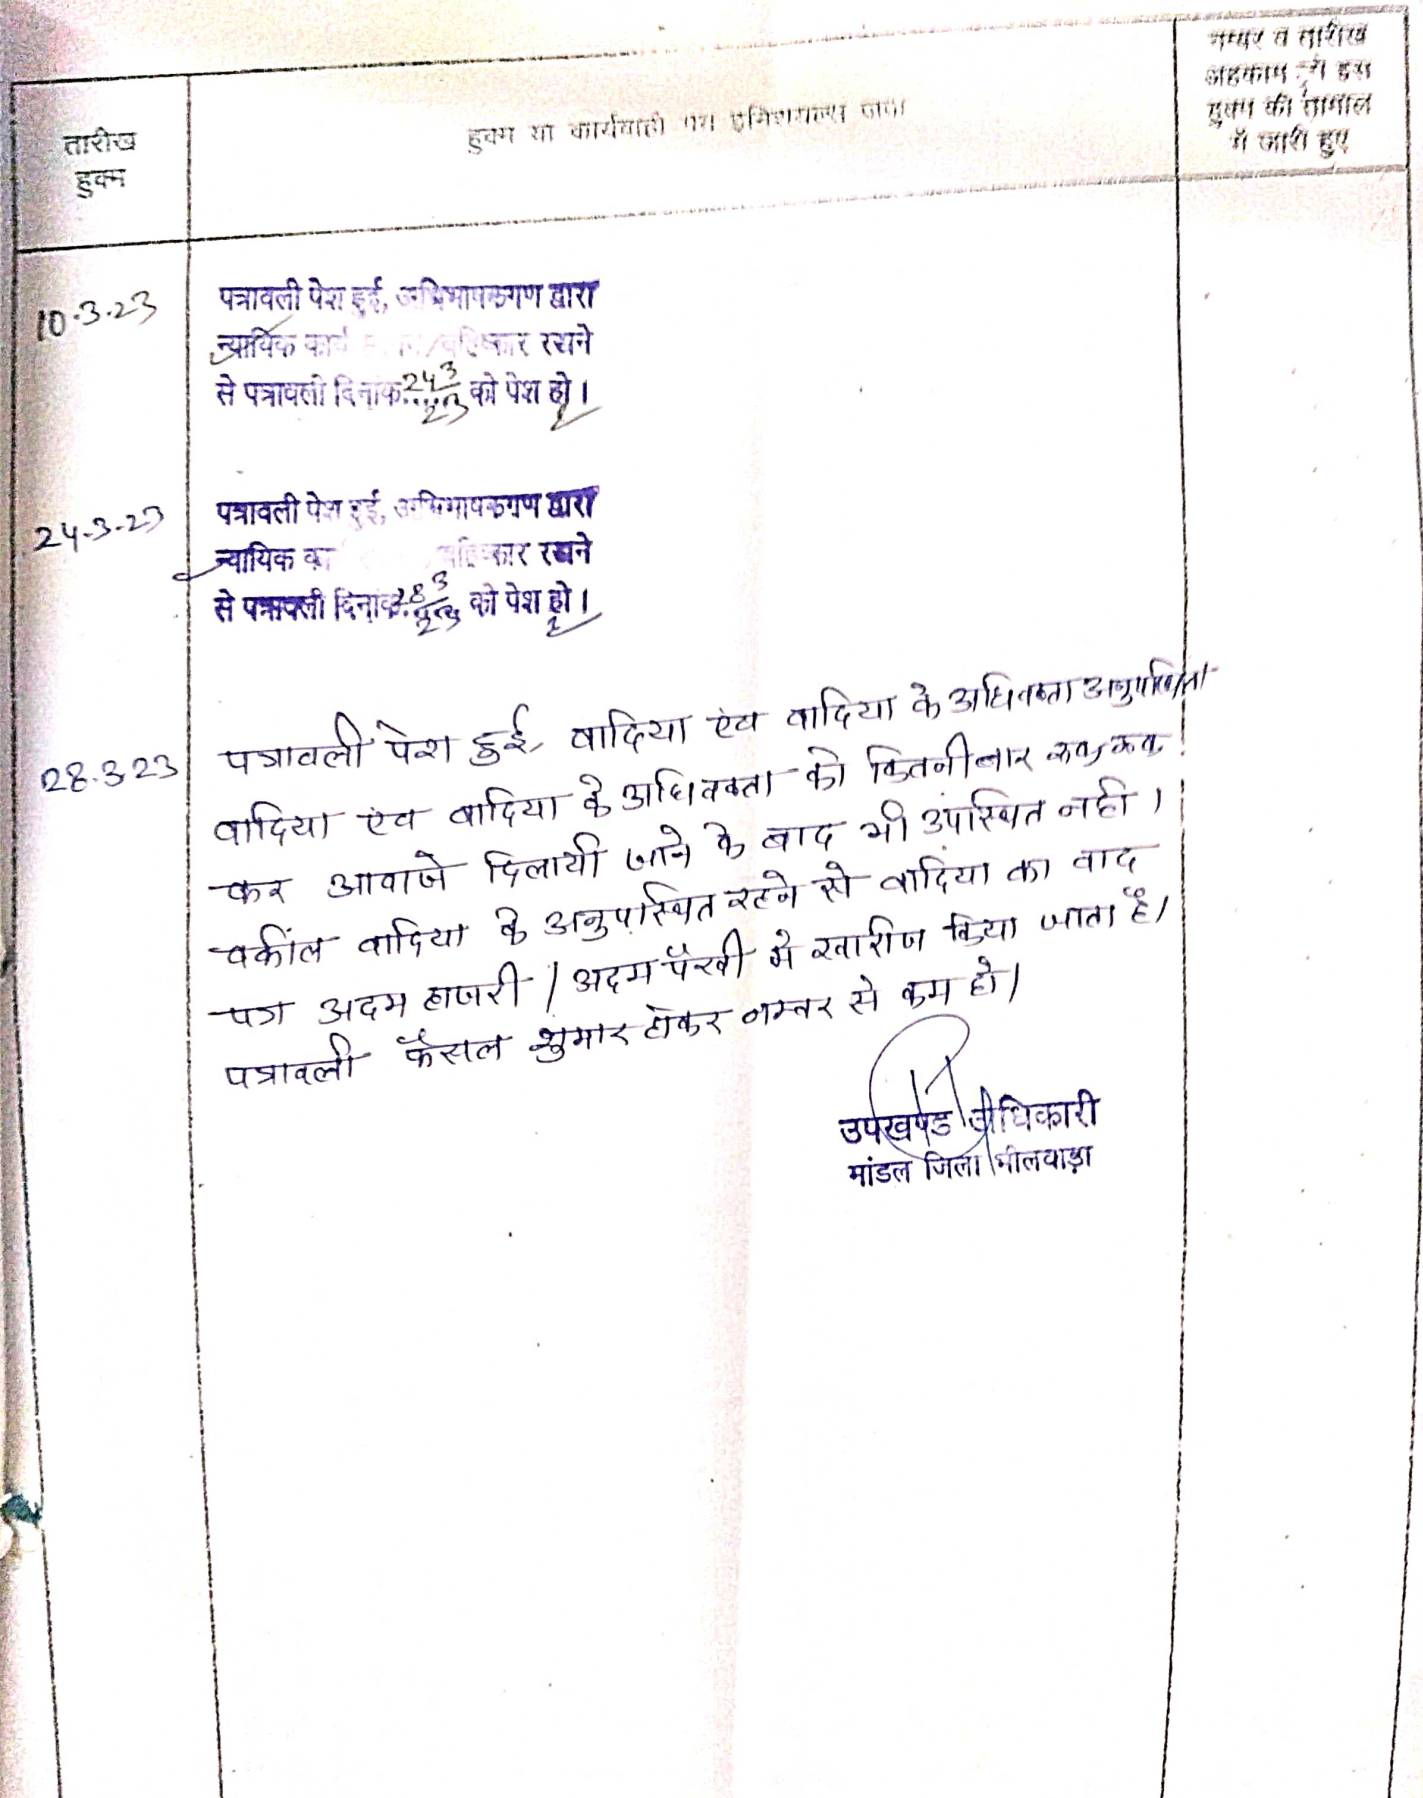 तारीख
हुक्म
हुक्म या कार्यवाही मय इनिशियल्स जज
नम्बर व तारीख
अहकाम जो इस
हुक्म की तामील
में जारी हुए
10.3.23
पत्रावली पेश हुई, अभिभाषकगण द्वारा
न्यायिक कार्य बहिष्कार रखने
से पत्रावली दिनांक 24/3/23 को पेश हो।
24-3-23
पत्रावली पेश हुई, अभिभाषकगण द्वारा
न्यायिक का बहिष्कार रखने
से पत्रावली दिनांक 28/3/23 को पेश हो।
28.3.23
पत्रावली पेश हुई, वादिया एंव वादिया के अधिवक्ता अनुपस्थित
वादिया एंव वादिया के अधिवक्ता को कितनी बार रूक रूक
कर आवाजे दिलायी जाने के बाद भी उपस्थित नही।
वकील वादिया के अनुपस्थित रहने से वादिया का वाद
पत्र अदम हाजरी / अदम पैरवी मे खारीज किया जाता है।
पत्रावली फैसल शुमार होकर नम्बर से कम हो।
उपखण्ड अधिकारी
मांडल जिला भीलवाड़ा